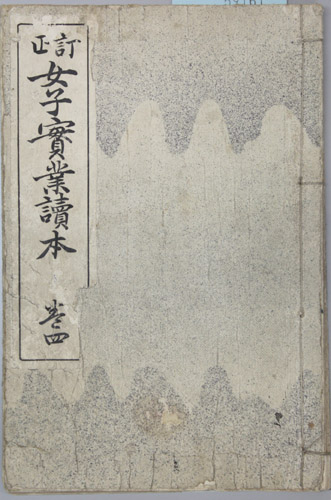 訂正
女子實業讀本
巻四